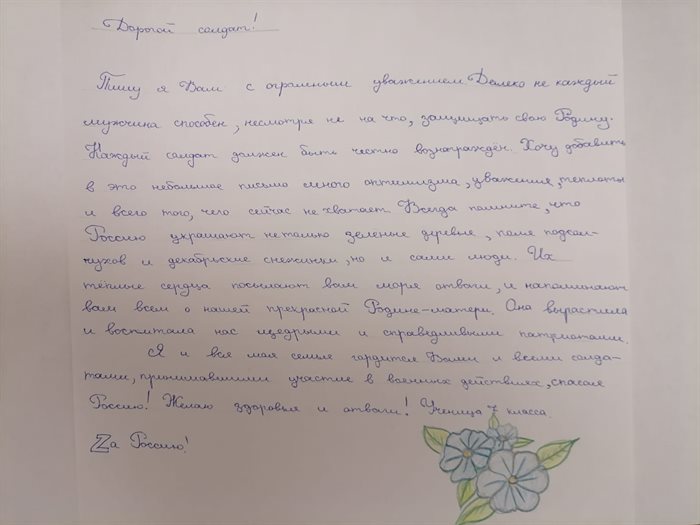 Дорогой солдат!
Пишу я Вам с огромным уважением. Далеко не каждый
мужчина способен, несмотря не на что, защищать свою Родину.
Каждый солдат должен быть честно вознаграждён. Хочу добавить
в это небольшое письмо много оптимизма, уважения, теплоты
и всего того, чего сейчас не хватает. Всегда помните, что
Россию украшают не только зеленые деревья, поля подсол-
нухов и декабрьские снежинки, но и сами люди. Их
тёплые сердца посылают вам моря отваги, и напоминают
вам всем о нашей прекрасной Родине-матери. Она вырастила
и воспитала нас щедрыми и справедливыми патриотами.
Я и вся моя семья гордится Вами и всеми солда-
тами, принимавшими участие в военных действиях, спасая
Россию! Желаю здоровья и отваги! Ученица 7 класса.
Zа Россию!